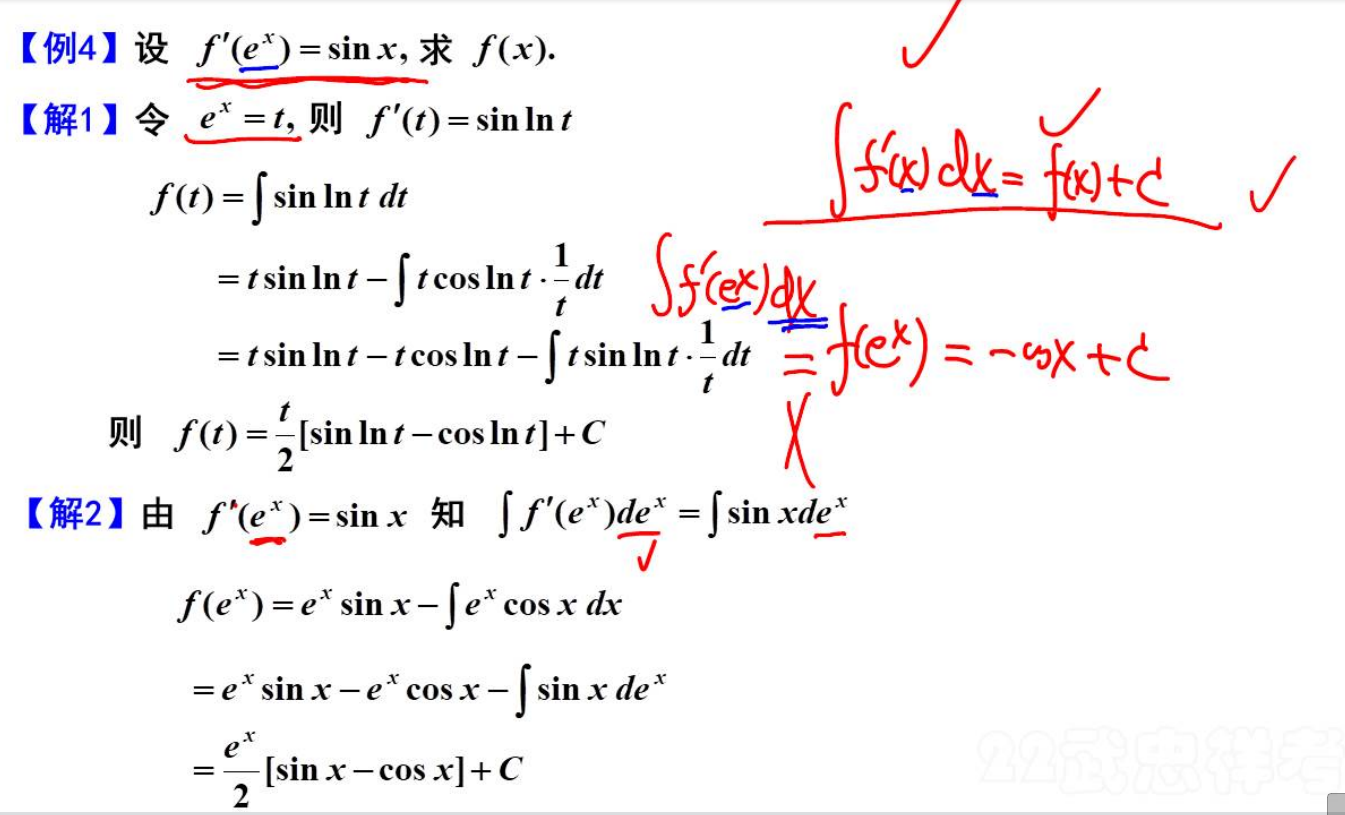 【例4】设 f′(eˣ) = sin x, 求 f(x).
【解1】令 eˣ = t, 则 f′(t) = sin ln t
∫f′(x)dx = f(x)+C
f(t) = ∫ sin ln t dt
= t sin ln t − ∫ t cos ln t · 1/t dt
∫f′(eˣ)dx
= t sin ln t − t cos ln t − ∫ t sin ln t · 1/t dt
= f(eˣ) = −cosx + C
则 f(t) = t/2 [sin ln t − cos ln t] + C
【解2】由 f′(eˣ) = sin x 知 ∫ f′(eˣ)deˣ = ∫ sin xdeˣ
f(eˣ) = eˣ sin x − ∫ eˣ cos x dx
= eˣ sin x − eˣ cos x − ∫ sin x deˣ
= eˣ/2 [sin x − cos x] + C
22武忠祥考